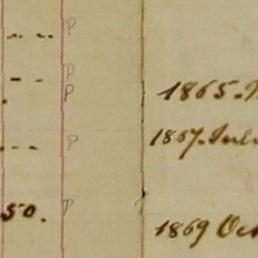 P
P
P
1865.
P
1867. July
50. P
1869 Oct